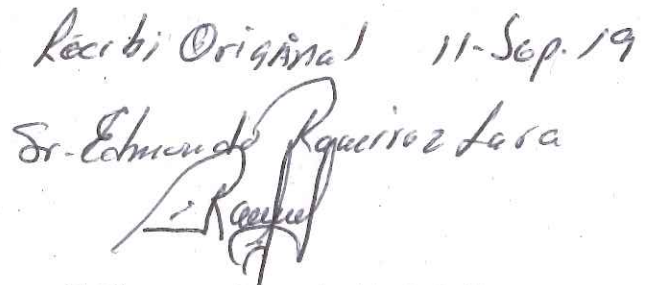 Recibi Original 11-Sep. 19
Sr. Edmundo Ramirez Lara